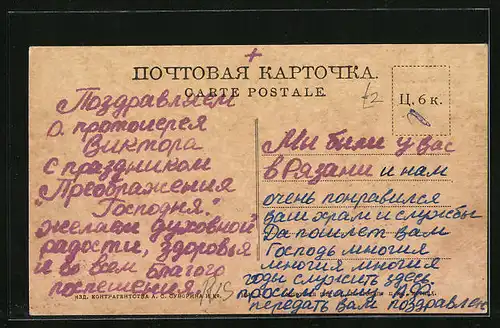 +
ПОЧТОВАЯ КАРТОЧКА.
CARTE POSTALE.
Ц. 6 к.
Поздравляем
о. протоиерея
Виктора
с праздником
"Преображения
Господня."
желаем духовной
радости, здоровья
и во всем благого
поспешения.
Мы были у вас
в Рязани и нам
очень понравился
ваш храм и службы
Да пошлет вам
Господь многия
многия многия
годы служить здесь
просим нашу
передать вам поздравлен
ИЗД. КОНТРАГЕНТСТВА А. С. СУВОРИНА и К°.